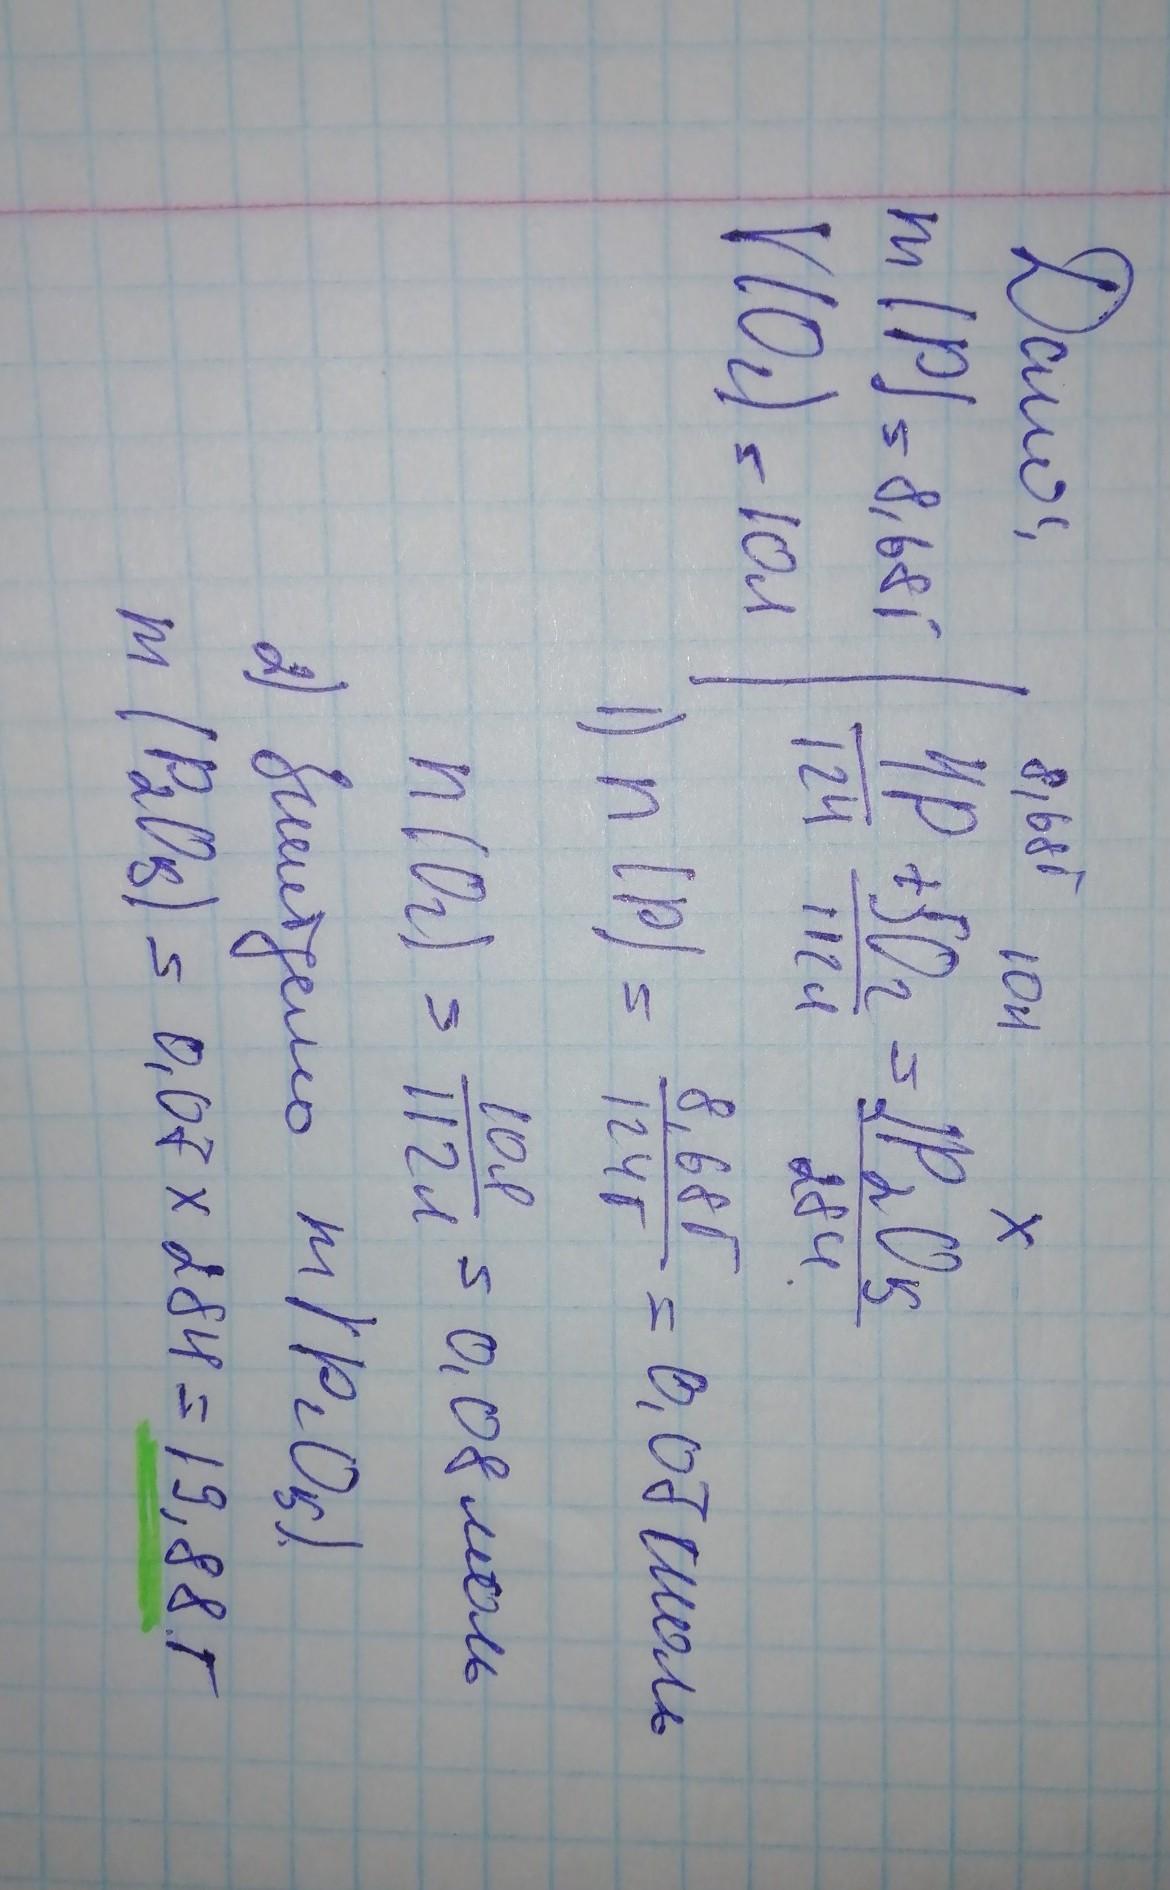 Дано:
m(P) = 8,68г
V(O2) = 10л
8,68г 10л x
4P + 5O2 = 2P2O5
124 112л 284
1) n(P) = 8,68г/124г = 0,07 моль
n(O2) = 10л/112л = 0,08 моль
2) m(P2O5)
m(P2O5) = 0,07 x 284 = 19,88г